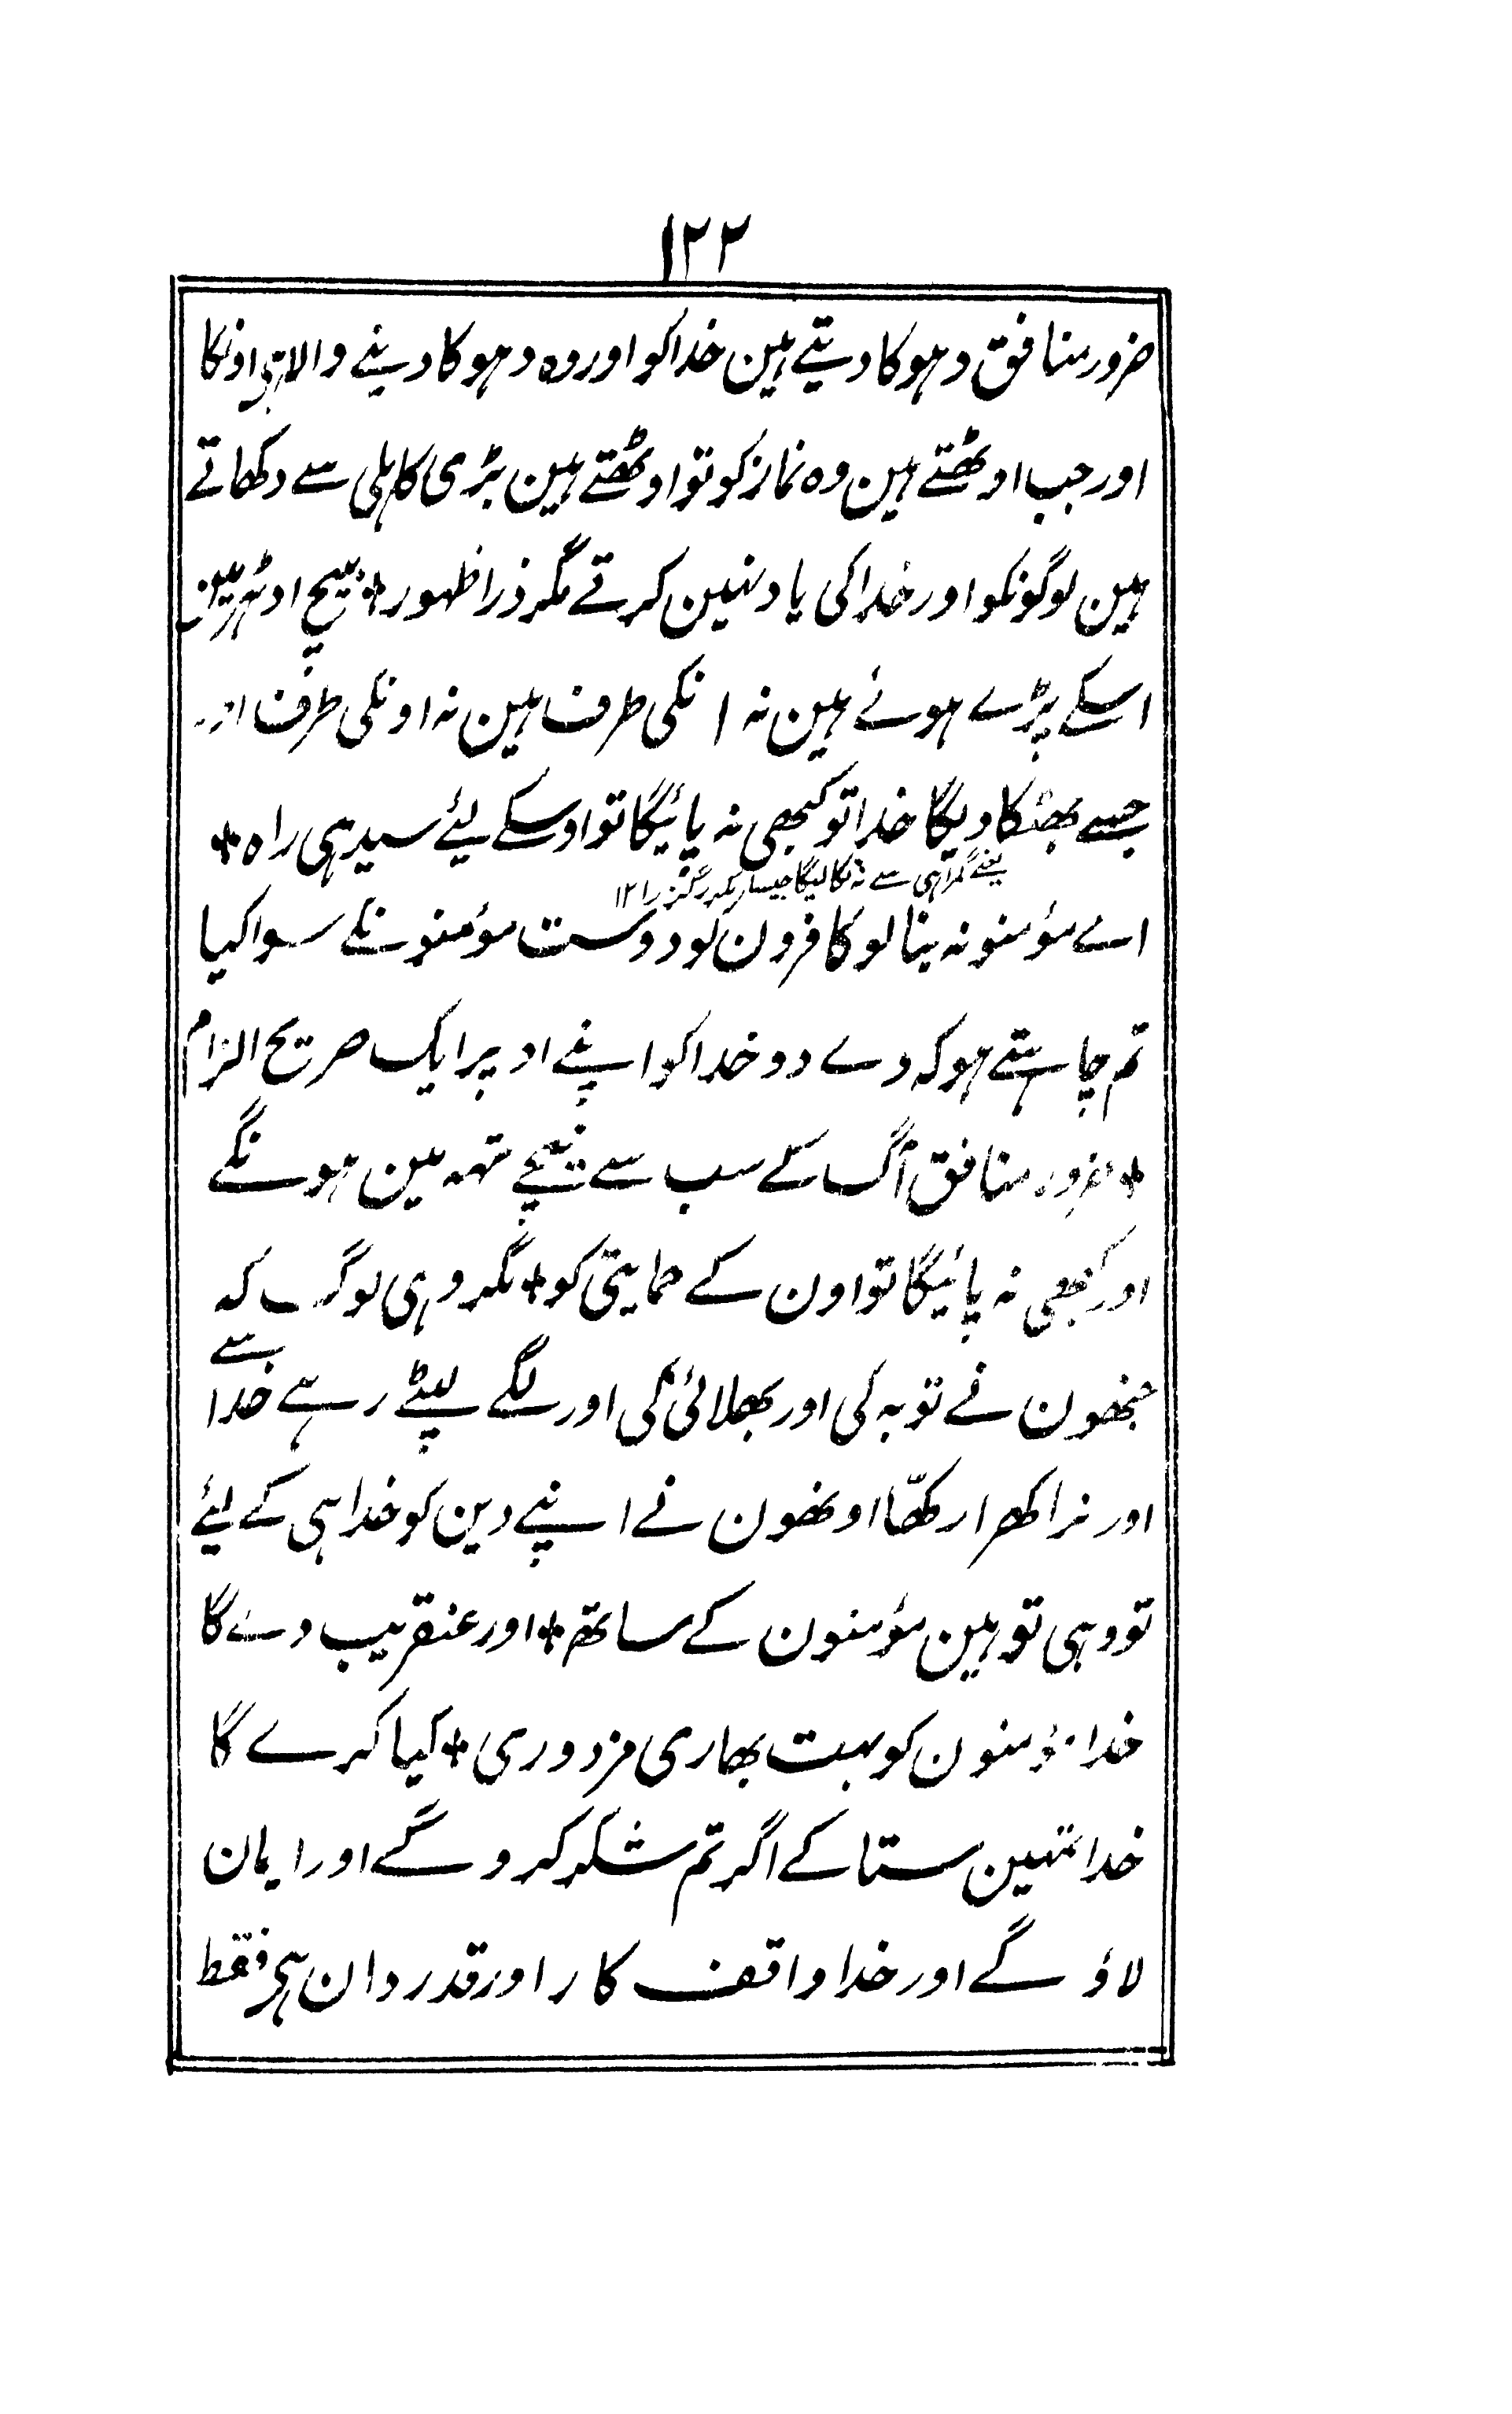 ۱۲۲
ضرور منافق دہوکا دیتے ہین خدا کو اور وہ دہوکا دینے والا ہی اونکا
اور جب اوٹھتے ہین وہ نماز کو تو اوٹھتے ہین بڑی کاہلی سے دکھاتے
ہین لوگونکو اور خدا کی یاد نہین کرتے مگر ذرا ظہور * بیچ
اسکے پڑے ہوئے ہین نہ انکی طرف ہین نہ اونکی طرف اور
جسے بھٹکا دیگا خدا تو کبھی نہ پائیگا تو اوسکے لیئے سیدہی راہ *
یعنے گمراہی سے نہ نکالیگا جیسا مکرر گذرا ۱۲
اے مؤمنو نہ بنا لو کافرون کو دوست مؤمنونکے سوا کیا
تم چاہتے ہو کہ دے دو خدا کو اپنے اوپر ایک صریح الزام
* ضرور منافق آگ کے سب سے نیچے تہہ مین ہونگے
اور کبھی نہ پائیگا تو اون کے حمایتی کو * مگر وہی لوگ کہ
جنھون نے توبہ کی اور بھلائی کی اور لگے لپٹے رہے خدا سے
اور نرا کھرا رکھّا اونھون نے اپنے دین کو خدا ہی کے لیئے
تو وہی تو ہین مؤمنون کے ساتھ * اور عنقریب دے گا
خدا مؤمنون کو بہت بھاری مزدوری * کیا کرے گا
خدا تمہین ستا کے اگر تم شکر کرو گے اور ایمان
لاؤ گے اور خدا واقف کار اور قدردان ہی فقط